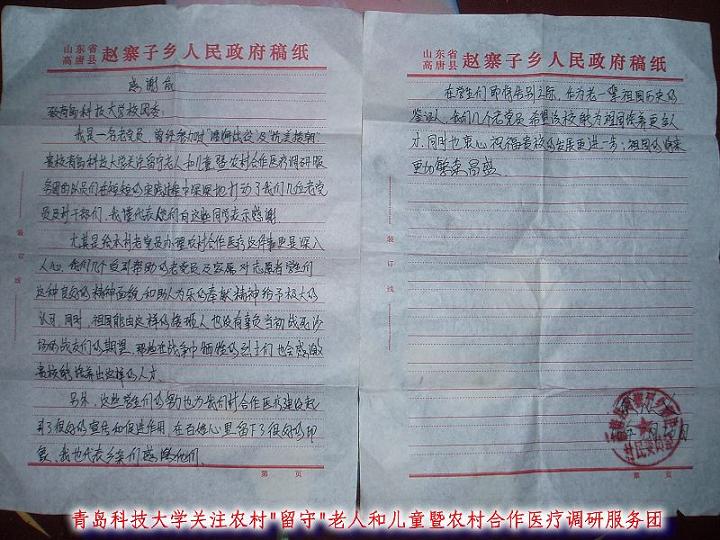 山东省
高唐县 赵寨子乡人民政府稿纸
感谢信
致青岛科技大学校团委:
我是一名老党员,曾经参加过"淮海战役"及"抗美援朝"
贵校青岛科技大学关注留守老人和儿童暨农村合作医疗调研服
务团的队员们在短短的实践过程中深深地打动了我们几位老党
员及村干部们,我谨代表他们向这些同学表示感谢.
尤其是给本村老党员办理农村合作医疗这件事更是深入
人心.我们几个受到帮助的老党员及家属对志愿者学生们
这种良好的精神面貌和助人为乐的奉献精神给予极大的
认可.同时,祖国能由这样的接班人也没有辜负当初战死沙
场的战友们的期望.那些在战争中牺牲的烈士们也会感激
贵校能培养出这样的人才.
另外,这些学生们的努力也为我们村合作医疗建设起
到了很好的宣传和促进作用,在百姓心里留下了很好的印
象,我也代表乡亲们感谢他们.
装订线
第 页
山东省
高唐县 赵寨子乡人民政府稿纸
在学生们即将告别之际,作为老一辈祖国历史的
鉴证人,我们几个老党员希望贵校能为祖国培养更多人
才,同时也衷心祝福贵校的发展更进一步;祖国的将来
更加繁荣昌盛
装订线
第 页
青岛科技大学关注农村"留守"老人和儿童暨农村合作医疗调研服务团